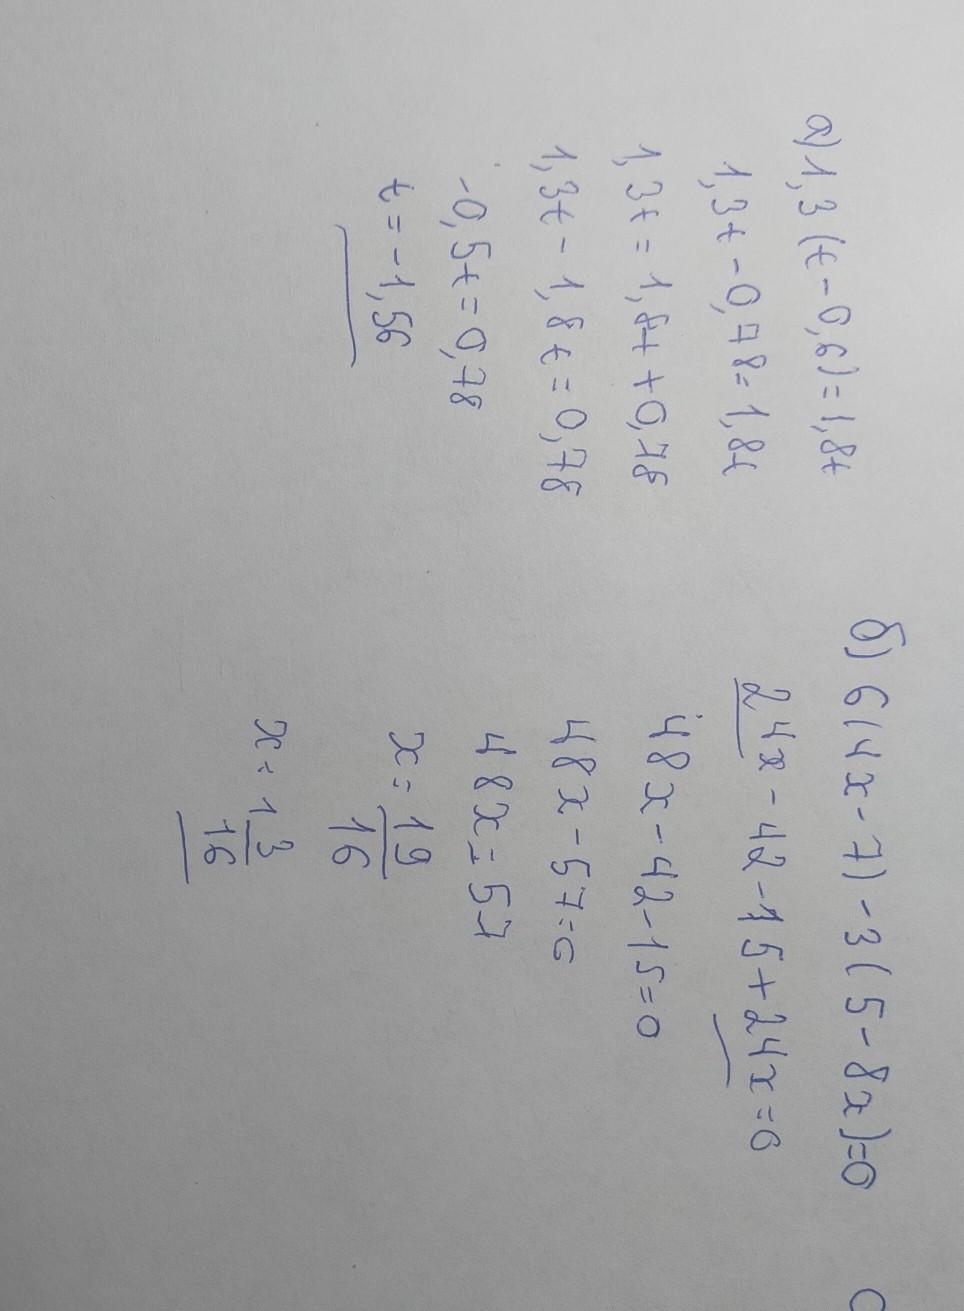 а) 1,3 (t - 0,6) = 1,8t
1,3t - 0,78 = 1,8t
1,3t = 1,8t + 0,78
1,3t - 1,8t = 0,78
-0,5t = 0,78
t = -1,56
б) 6(4x - 7) - 3(5 - 8x) = 0
24x - 42 - 15 + 24x = 0
48x - 42 - 15 = 0
48x - 57 = 0
48x = 57
x = 19/16
x = 1 3/16